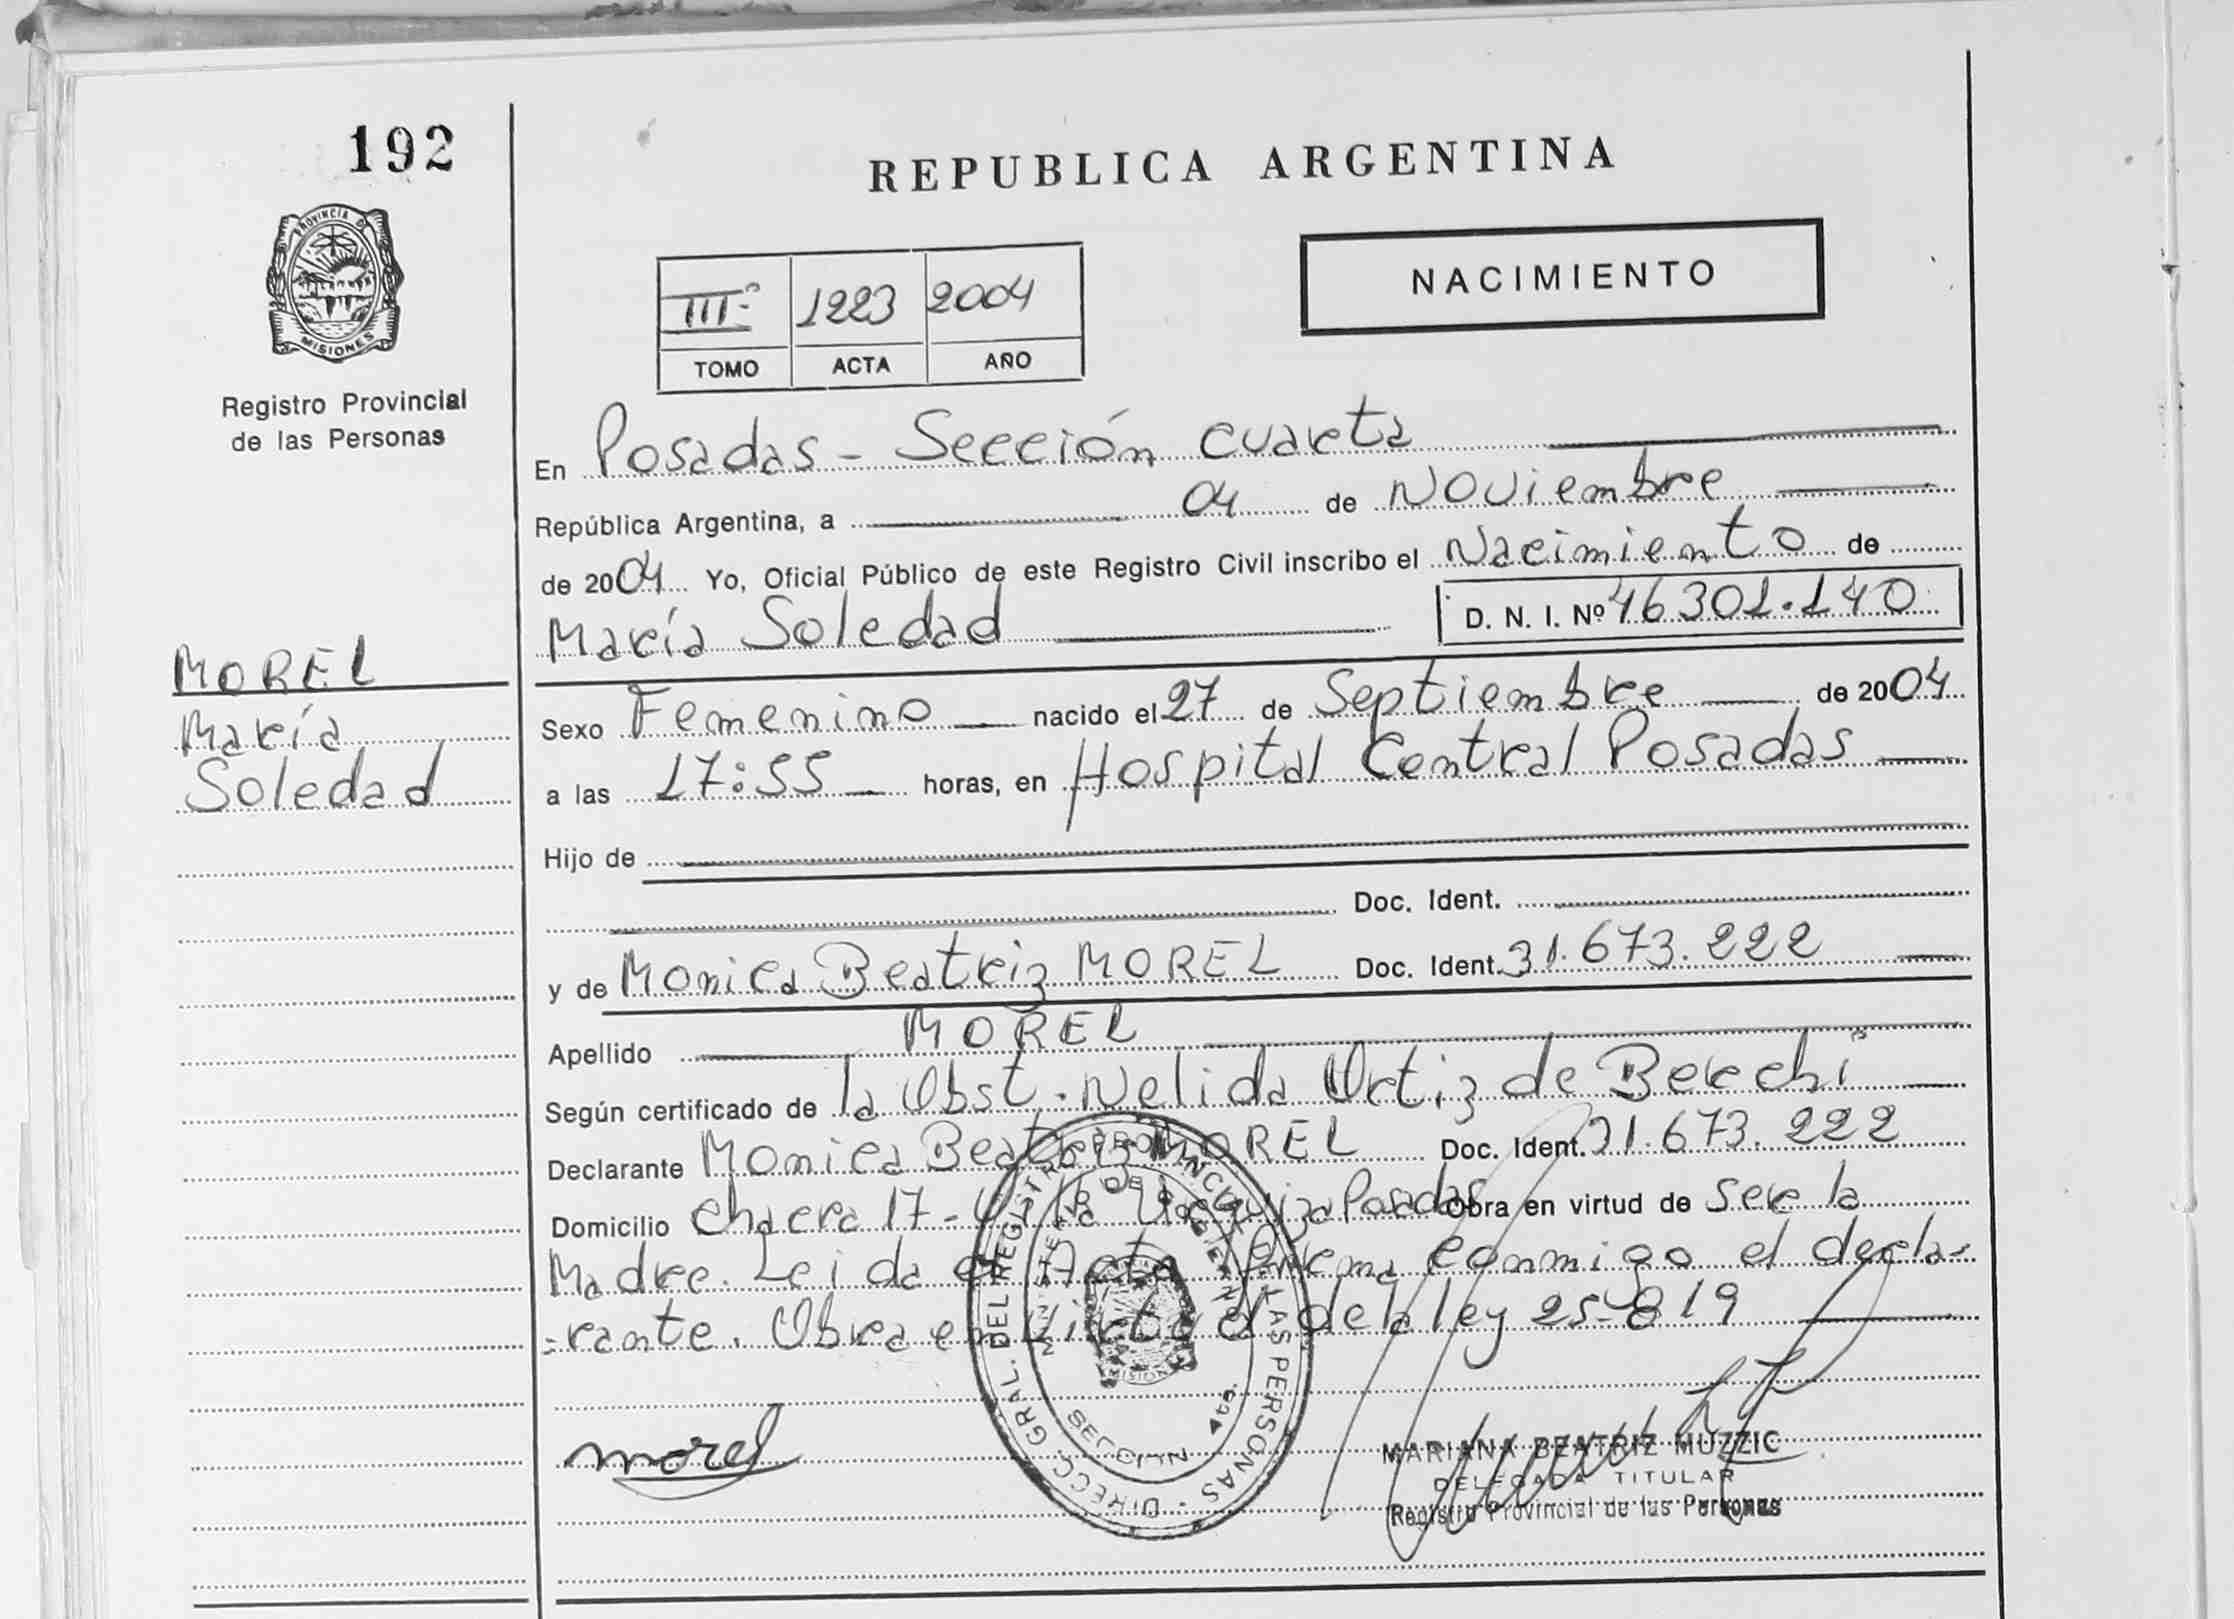 192
REPUBLICA ARGENTINA
PROVINCIA DE
MISIONES
Registro Provincial
de las Personas
NACIMIENTO
III° 1223 2004
TOMO ACTA AÑO
En Posadas - Sección Cuarta
República Argentina, a 04 de Noviembre
de 2004 Yo, Oficial Público de este Registro Civil inscribo el Nacimiento de
María Soledad D. N. I. Nº 46301.140
MOREL
María
Soledad
Sexo Femenino nacido el 27 de Septiembre de 2004
a las 17:55 horas, en Hospital Central Posadas
Hijo de
Doc. Ident.
y de Monica Beatriz MOREL Doc. Ident. 31.673.222
Apellido MOREL
Según certificado de la Obst. Nelida Ortiz de Berchi
Declarante Monica Beatriz MOREL Doc. Ident. 31.673.222
Domicilio Chacra 17 - Villa Urquiza Posadas Obra en virtud de Ser la
Madre. Leida el Acta Firma conmigo el decla-
-rante. Obra en Virtud de la ley 25-819
morel
DIRECC. GRAL. DEL REGISTRO PROVINCIAL DE LAS PERSONAS
MINISTERIO DE GOBIERNO
MISIONES
MARIANA BEATRIZ MUZZIC
DELEGADA TITULAR
Registro Provincial de las Personas